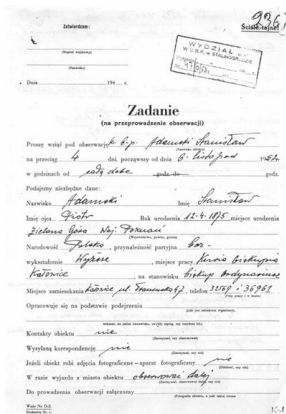 Zatwierdzam:
Ściśle tajne
WYDZIAŁ
W.U.B.P. w STALINOGRODZIE
Dnia 194 r.
Zadanie
(na przeprowadzenie obserwacji)
Proszę wziąć pod obserwację k. E.p. Adamski Stanisław
na przeciąg 4 dni, począwszy od dnia 6 listopad 195
w godzinach od całą dobę godz. do godz.
Podajemy niezbędne dane:
Nazwisko Adamski Imię Stanisław
Imię ojca Piotr Rok urodzenia 12.4.1875 miejsce urodzenia
Zielona Góra Woj. Poznań
Narodowość Polska, przynależność partyjna bez-
wykształcenie Wyższe, miejsce pracy Kuria Biskupia
Katowice, na stanowisku Biskup Ordynariusz
Miejsce zamieszkania Katowice ul. 67, telefon 32159 i 36961
Opracowuje się na podstawie podejrzenia
Kontakty obiektu nie
Wysyłaną korespondencję nie
Jeżeli obiekt robi zdjęcia fotograficzne — aparat fotograficzny nie
W razie wyjazdu z miasta obiektu obserwować dalej
Do prowadzenia obserwacji załączony
Wzór Nr. D-2.
Drukarnia Nr. 1.